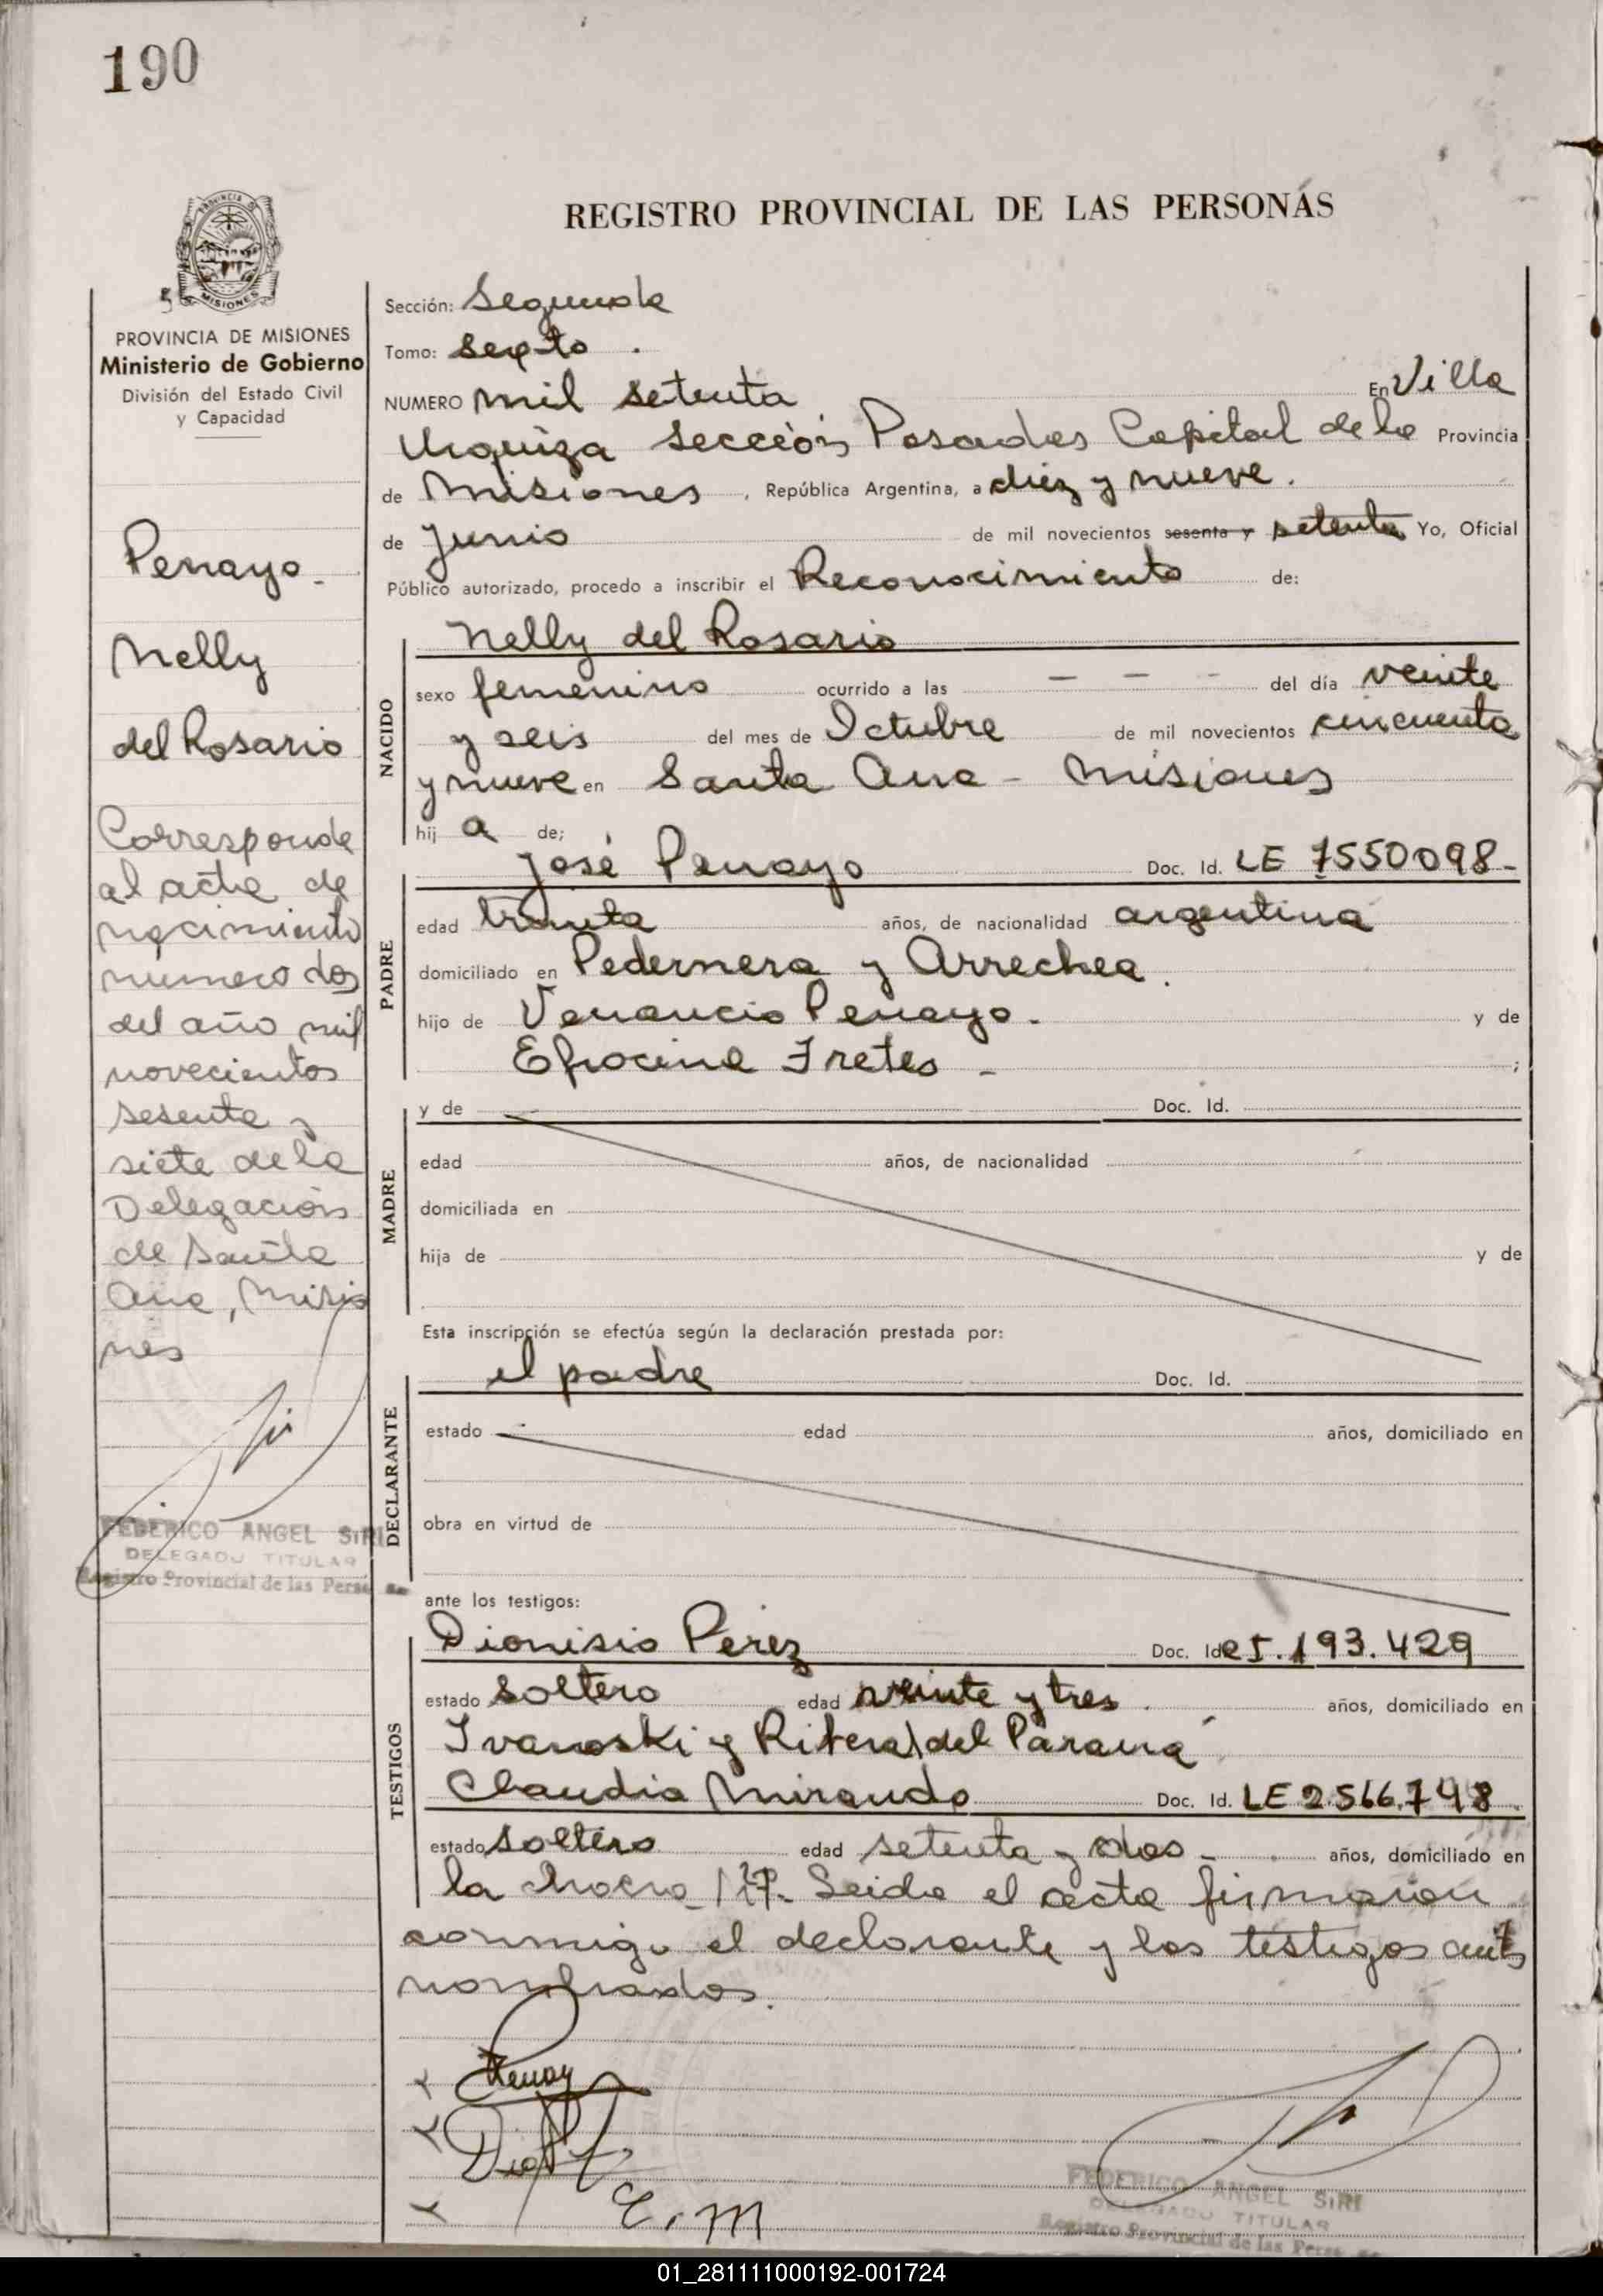 190
REGISTRO PROVINCIAL DE LAS PERSONAS
PROVINCIA DE MISIONES
Ministerio de Gobierno
División del Estado Civil
y Capacidad
Penayo
Nelly
del Rosario
Corresponde
al acta de
nacimiento
numero dos
del año mil
novecientos
sesenta y
siete de la
Delegación
de Santa
Ana, Misio
nes
FEDERICO ANGEL SIRI
DELEGADO TITULAR
Registro Provincial de las Perso
Sección: Segunda
Tomo: Sexto.
NUMERO mil setenta En Villa
Urquiza sección Posadas Capital de la Provincia
de Misiones, República Argentina, a diez y nueve.
de Junio de mil novecientos sesenta y setenta Yo, Oficial
Público autorizado, procedo a inscribir el Reconocimiento de:
NACIDO
Nelly del Rosario
sexo femenino ocurrido a las - - - del día veinte
y seis del mes de Octubre de mil novecientos cincuenta
y nueve en Santa Ana - Misiones
hij a de;
PADRE
José Penayo Doc. Id. LE 7550098-
edad treinta años, de nacionalidad argentina
domiciliado en Pedernera y Arrechea.
hijo de Venancio Penayo. y de
Efrocina Fretes - ;
MADRE
y de Doc. Id.
edad años, de nacionalidad
domiciliada en
hija de y de
Esta inscripción se efectúa según la declaración prestada por:
DECLARANTE
el padre Doc. Id.
estado edad años, domiciliado en
obra en virtud de
ante los testigos:
TESTIGOS
Dionisio Perez Doc. Id. 193.429
estado soltero edad veinte y tres años, domiciliado en
Ivanoski y Ribera del Parana
Claudio Mirando Doc. Id. LE 2.566.748
estado soltero edad setenta y dos - años, domiciliado en
la chacra Leida el acta firmaron
conmigo el declarante y los testigos ante
nombrados.
Penay
C. M
FEDERICO ANGEL SIRI
DELEGADO TITULAR
Registro Provincial de las Perso
01_281111000192-001724